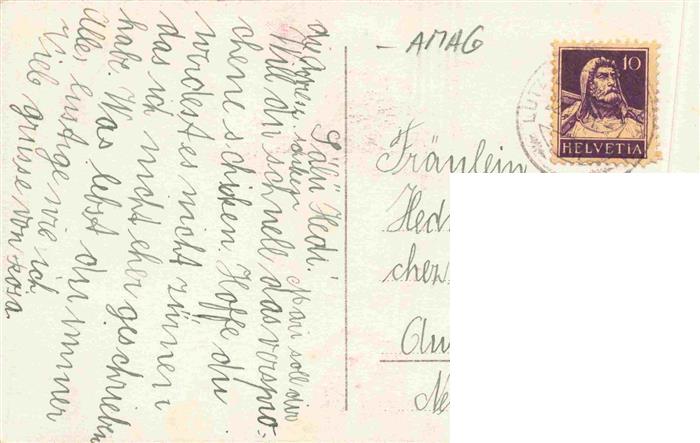 Salü Hedi!
Will dir schnell das verspro-
chene schicken. Hoffe du
würdest es nicht zürnen
das ich nicht eher geschrieben
habe. Was lebst du immer
alles lustige wie ich.
Viele grüsse von Rosa.
Mari soll dir
die
- AMAG
10
HELVETIA
LUTZ
Fräulein
Hed
chez
Au
Ne